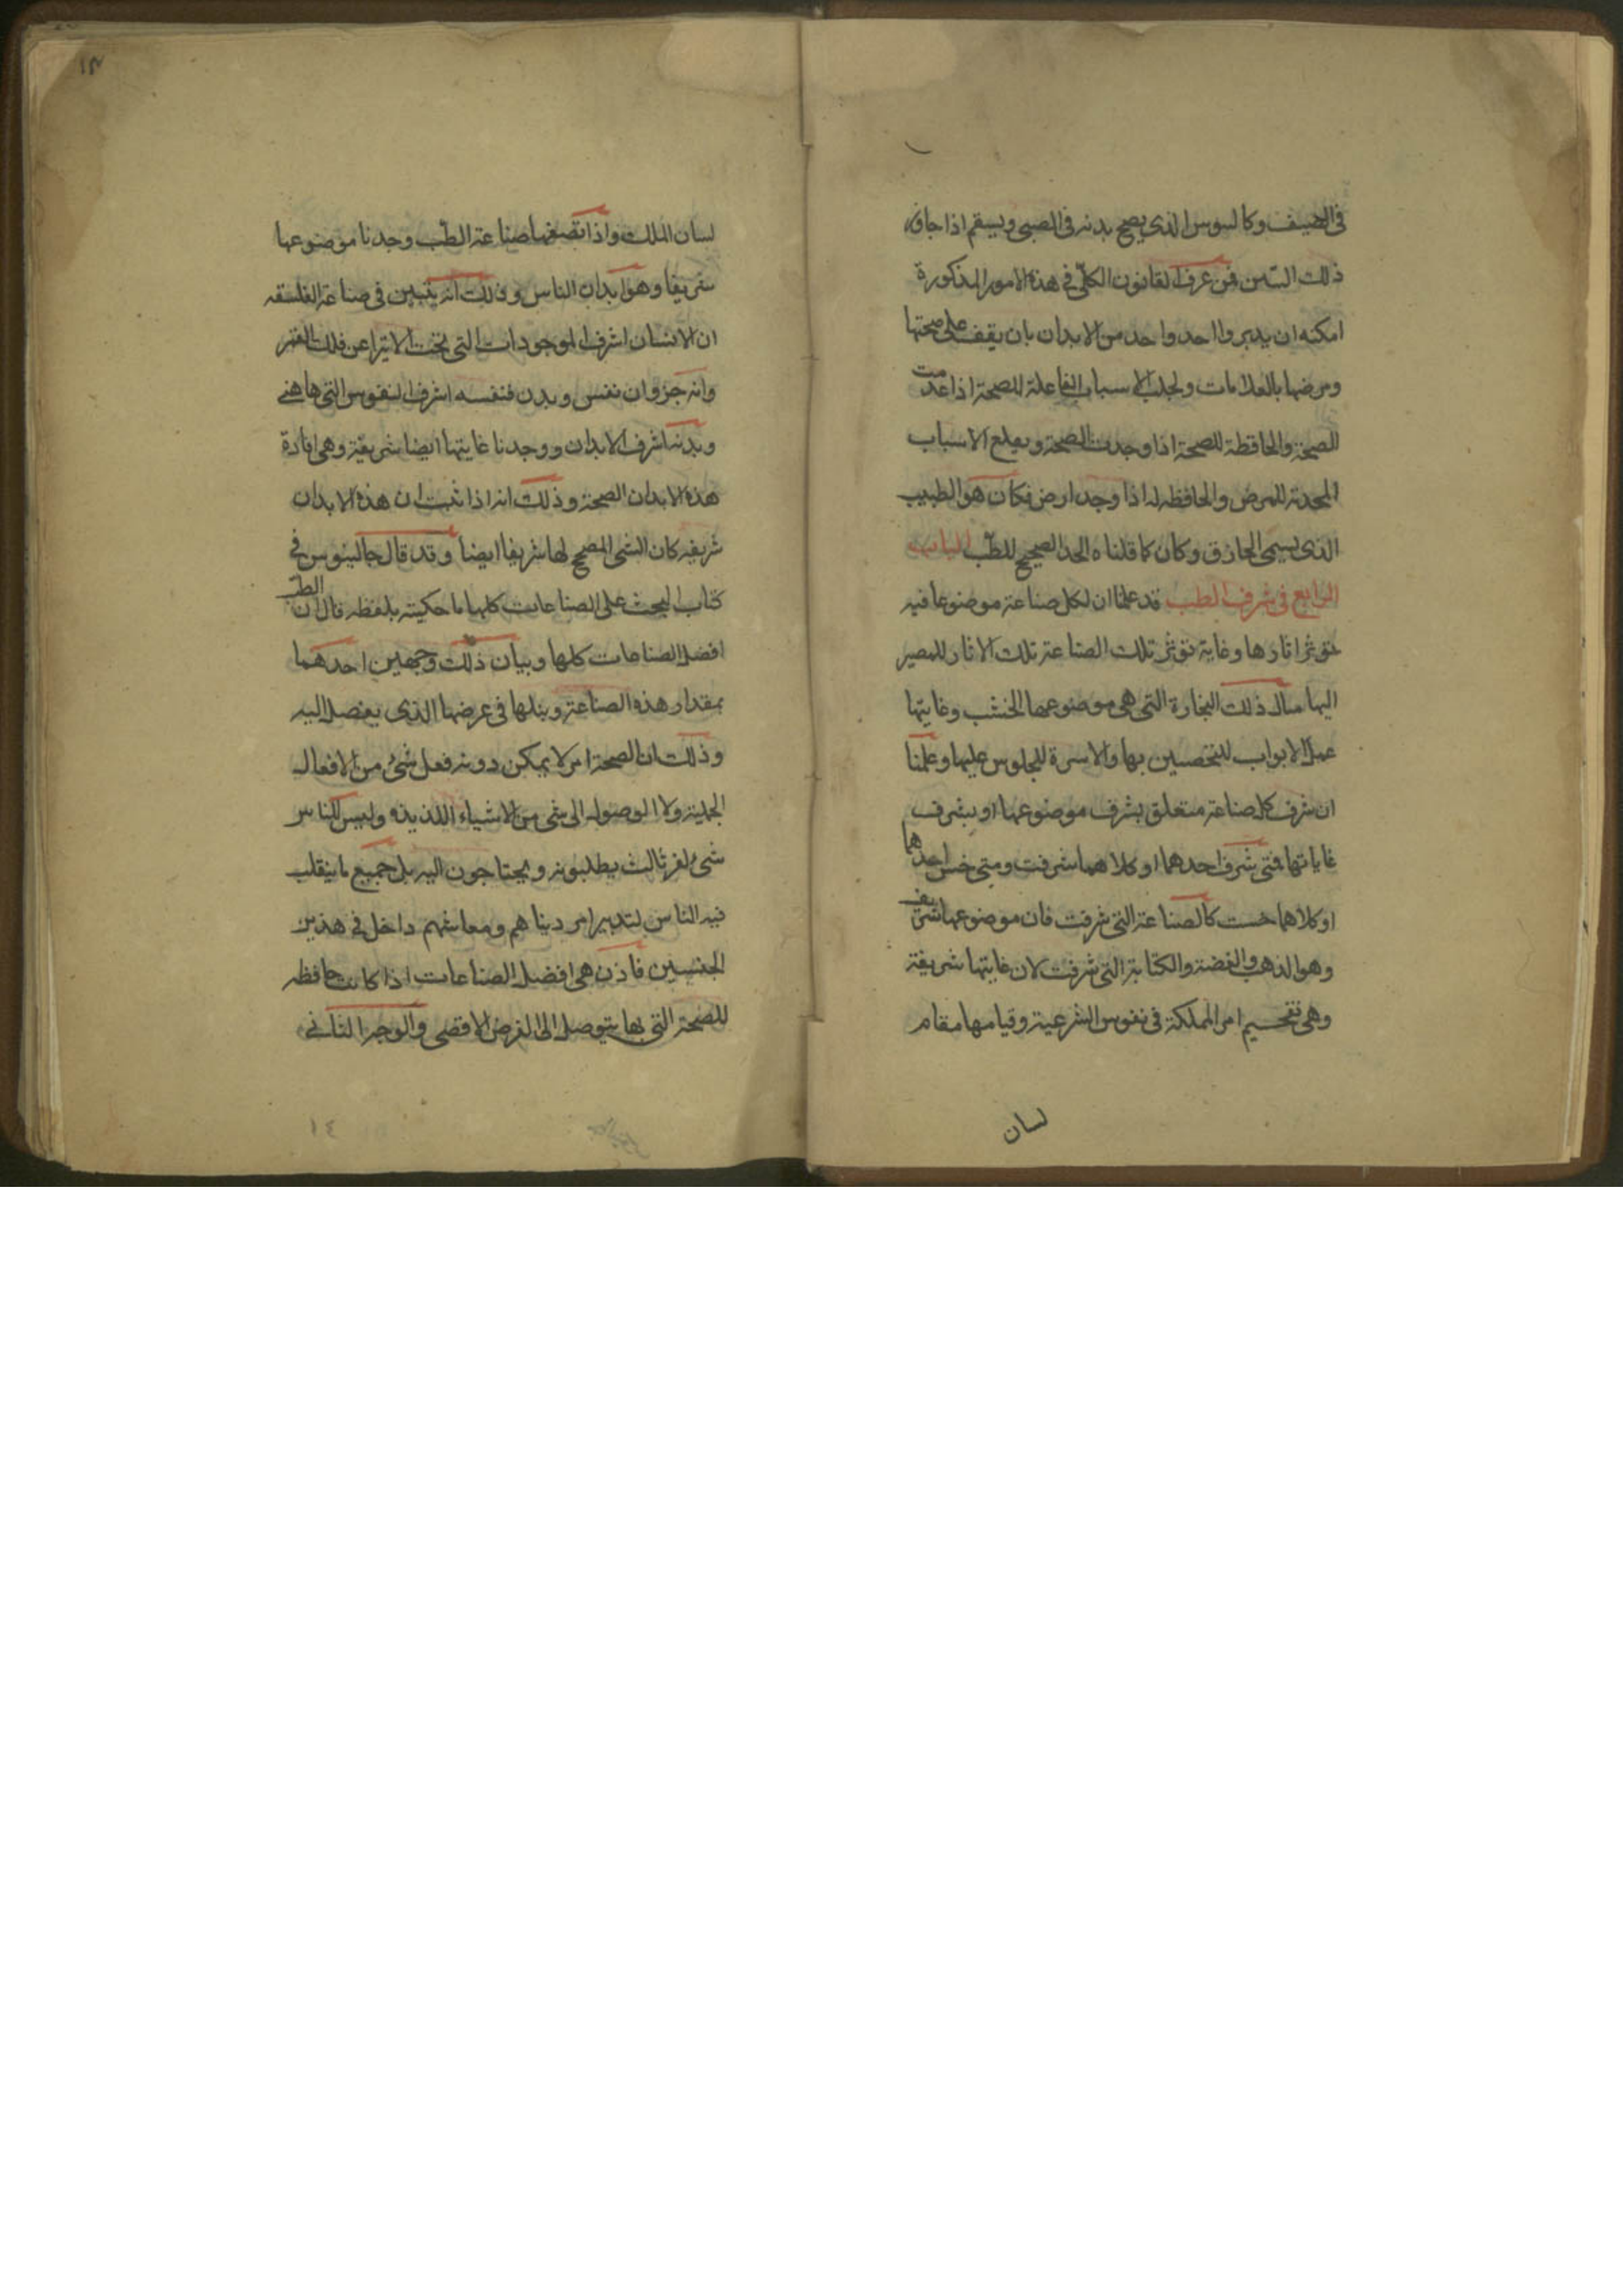 في الصيف وكالسوس الذي يصح بدنه في الصبى ويسقم اذا جاوز
ذلك السن فمن عرف القانون الكلّي في هذه الامور المذكورة
امكنه ان يدبر واحد واحد من الابدان بان يقف على صحتها
ومرضها بالعلامات ولجلب الاسباب الفاعلة للصحة اذا عدمت
الصحة والحافظة للصحة اذا وجدت الصحة ويقلع الاسباب
المحدثة للمرض والحافظه له اذا وجد فكان هو الطبيب
الذي يسمى الحاذق وكان كما قلناه الحد الصحيح للطبّ الباب
الرابع في شرف الطب قد علمنا ان لكل صناعة موضوعا فيه
تؤثر اثارها وغاية تؤثر تلك الصناعة تلك الاثار للمصير
اليها مثال ذلك النجارة التي هي موضوعها الخشب وغايتها
عمل الابواب للتحصين بها والاسرة للجلوس عليها وعلمنا
ان شرف كل صناعة متعلق بشرف موضوعها او بشرف
غاياتها فمتى شرف احدهما او كلاهما شرفت ومتى خس احدهما
او كلاهما خست كالصناعة التي شرفت فان موضوعها شريف
وهو الذهب والفضة والكتابة التي شرفت لان غايتها شريفة
وهي تفخيم امر المملكة في نفوس الشرعية وقيامها مقام
لسان
١٣
لسان الملك واذا تصفحنا صناعة الطبّ وجدنا موضوعها
شريفا وهو ابدان الناس وذلك انه يتبين في صناعة الفلسفه
ان الانسان اشرف الموجودات التي تحت الاثير اعن فلك القمر
وانه جزوان نفس وبدن فنفسه اشرف النفوس التي هاهنى
وبدنه اشرف الابدان ووجدنا غايتها ايضا شريفة وهي افادة
هذه الابدان الصحة وذلك انه اذا ثبت ان هذه الابدان
شريفه كان الشي المصحح لها شريفا ايضا وقد قال جالينوس في
كتاب البحث على الصناعات كلها ما حكيته بلفظه قال ان الطبّ
افضل الصناعات كلها وبيان ذلك وجهين احدهما
بمقدار هذه الصناعة ونبلها في غرضها الذي يقصد اليه
وذلك ان الصحة امر لا يمكن دونه فعل شئ من الافعال
الجميلة ولا الوصول الى شي من الاشياء اللذيذه وليس للناس
شئ اخر ثالث يطلبونه ويحتاجون اليه بل جميع ما يتقلب
فيه الناس لتدبير امر دنياهم ومعاشهم داخل في هذين
الجنسين فاذن هي افضل الصناعات اذا كانت حافظه
للصحة التي بها يتوصل الى الغرض الاقصى والوجه الثاني
١٤